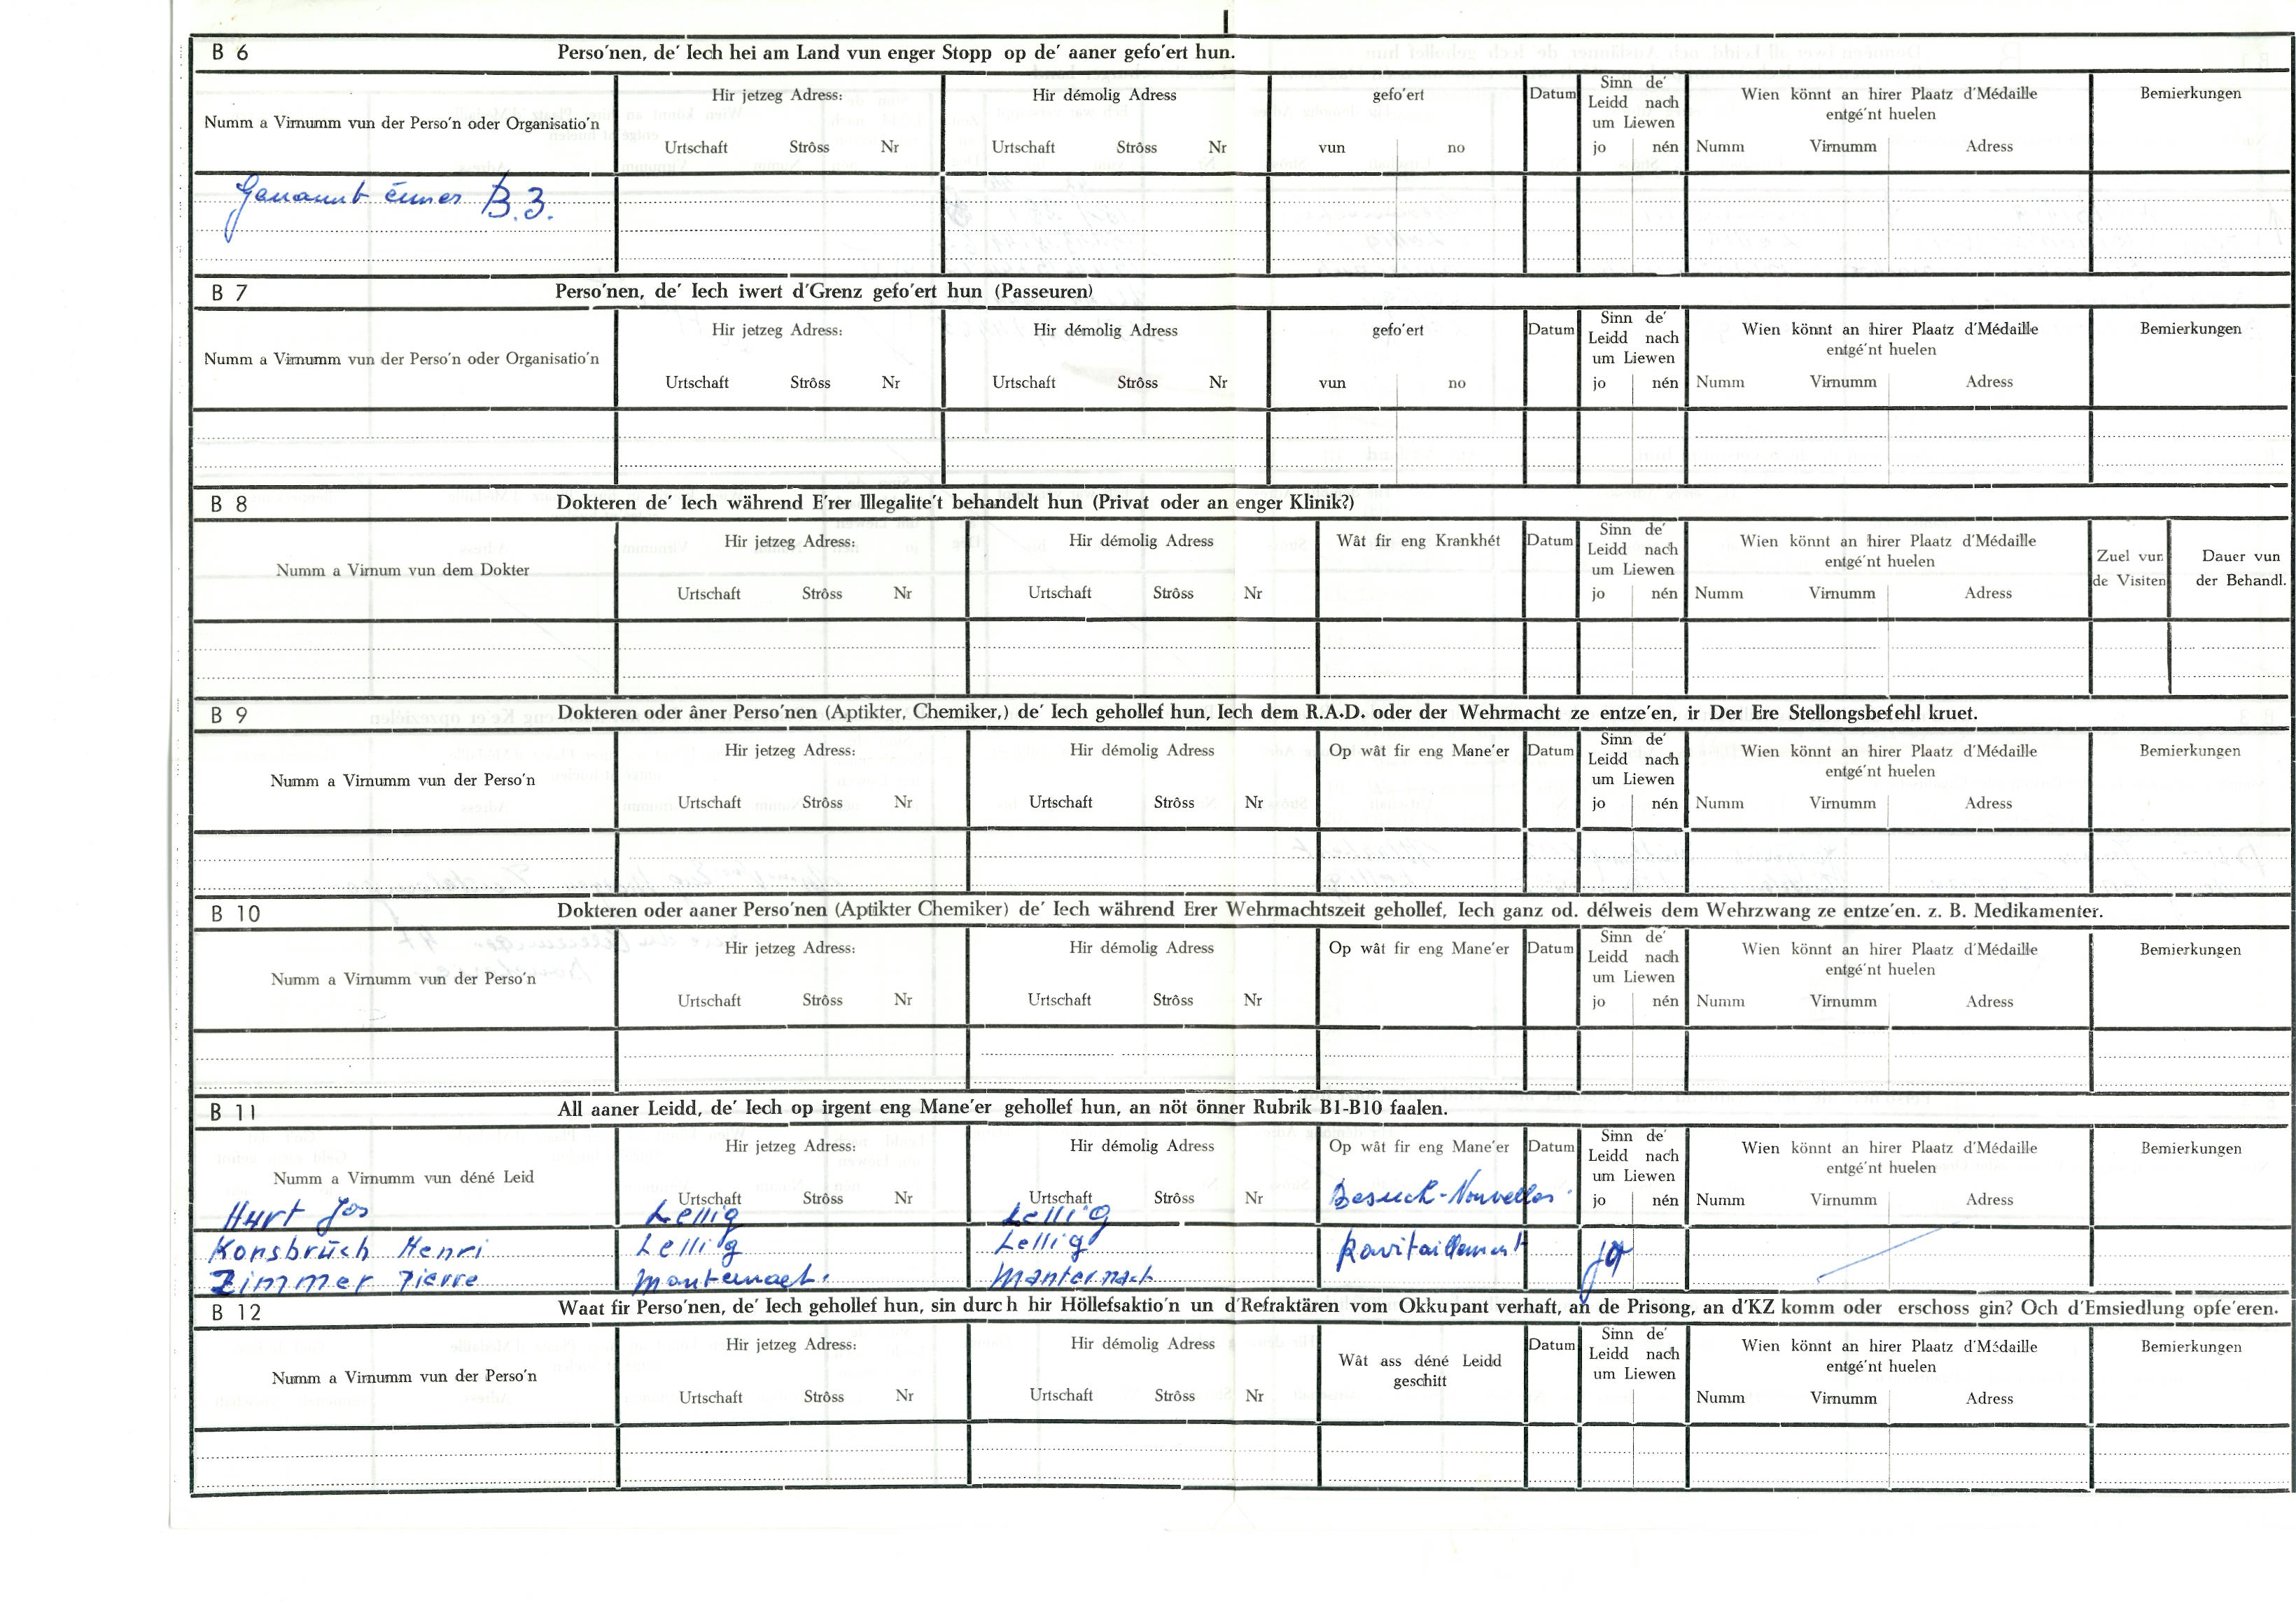 B 6 Perso'nen, de' Iech hei am Land vun enger Stopp op de' aaner gefo'ert hun.
Numm a Virnumm vun der Perso'n oder Organisatio'n Hir jetzeg Adress: Hir démolig Adress gefo'ert Datum Sinn de' Leidd nach um Liewen Wien könnt an hirer Plaatz d'Médaille entgé'nt huelen Bemierkungen
Urtschaft Strôss Nr Urtschaft Strôss Nr vun no jo nén Numm Virnumm Adress
Genannt ënner B.3.
B 7 Perso'nen, de' Iech iwert d'Grenz gefo'ert hun (Passeuren)
Numm a Virnumm vun der Perso'n oder Organisatio'n Hir jetzeg Adress: Hir démolig Adress gefo'ert Datum Sinn de' Leidd nach um Liewen Wien könnt an hirer Plaatz d'Médaille entgé'nt huelen Bemierkungen
Urtschaft Strôss Nr Urtschaft Strôss Nr vun no jo nén Numm Virnumm Adress
B 8 Dokteren de' Iech während E'rer Illegalite't behandelt hun (Privat oder an enger Klinik?)
Numm a Virnum vun dem Dokter Hir jetzeg Adress: Hir démolig Adress Wât fir eng Krankhét Datum Sinn de' Leidd nach um Liewen Wien könnt an hirer Plaatz d'Médaille entgé'nt huelen Zuel vun de Visiten Dauer vun der Behandl.
Urtschaft Strôss Nr Urtschaft Strôss Nr jo nén Numm Virnumm Adress
B 9 Dokteren oder âner Perso'nen (Aptikter, Chemiker,) de' Iech gehollef hun, Iech dem R.A.D. oder der Wehrmacht ze entze'en, ir Der Ere Stellongsbefehl kruet.
Numm a Virnumm vun der Perso'n Hir jetzeg Adress: Hir démolig Adress Op wât fir eng Mane'er Datum Sinn de' Leidd nach um Liewen Wien könnt an hirer Plaatz d'Médaille entgé'nt huelen Bemierkungen
Urtschaft Strôss Nr Urtschaft Strôss Nr jo nén Numm Virnumm Adress
B 10 Dokteren oder aaner Perso'nen (Aptikter Chemiker) de' Iech während Erer Wehrmachtszeit gehollef, Iech ganz od. délweis dem Wehrzwang ze entze'en. z. B. Medikamenter.
Numm a Virnumm vun der Perso'n Hir jetzeg Adress: Hir démolig Adress Op wât fir eng Mane'er Datum Sinn de' Leidd nach um Liewen Wien könnt an hirer Plaatz d'Médaille entgé'nt huelen Bemierkungen
Urtschaft Strôss Nr Urtschaft Strôss Nr jo nén Numm Virnumm Adress
B 11 All aaner Leidd, de' Iech op irgent eng Mane'er gehollef hun, an nöt önner Rubrik B1-B10 faalen.
Numm a Virnumm vun déné Leid Hir jetzeg Adress: Hir démolig Adress Op wât fir eng Mane'er Datum Sinn de' Leidd nach um Liewen Wien könnt an hirer Plaatz d'Médaille entgé'nt huelen Bemierkungen
Urtschaft Strôss Nr Urtschaft Strôss Nr jo nén Numm Virnumm Adress
Hurt Jos Lellig Lellig Besuch-Nouvelles.
Konsbrüch Henri Lellig Lellig Ravitaillement ja
Zimmer Pierre Manternach. Manternach
B 12 Waat fir Perso'nen, de' Iech gehollef hun, sin durch hir Höllefsaktio'n un d'Refraktären vom Okkupant verhaft, an de Prisong, an d'KZ komm oder erschoss gin? Och d'Emsiedlung opfe'eren.
Numm a Virnumm vun der Perso'n Hir jetzeg Adress: Hir démolig Adress Wât ass déné Leidd geschitt Datum Sinn de' Leidd nach um Liewen Wien könnt an hirer Plaatz d'Médaille entgé'nt huelen Bemierkungen
Urtschaft Strôss Nr Urtschaft Strôss Nr Numm Virnumm Adress